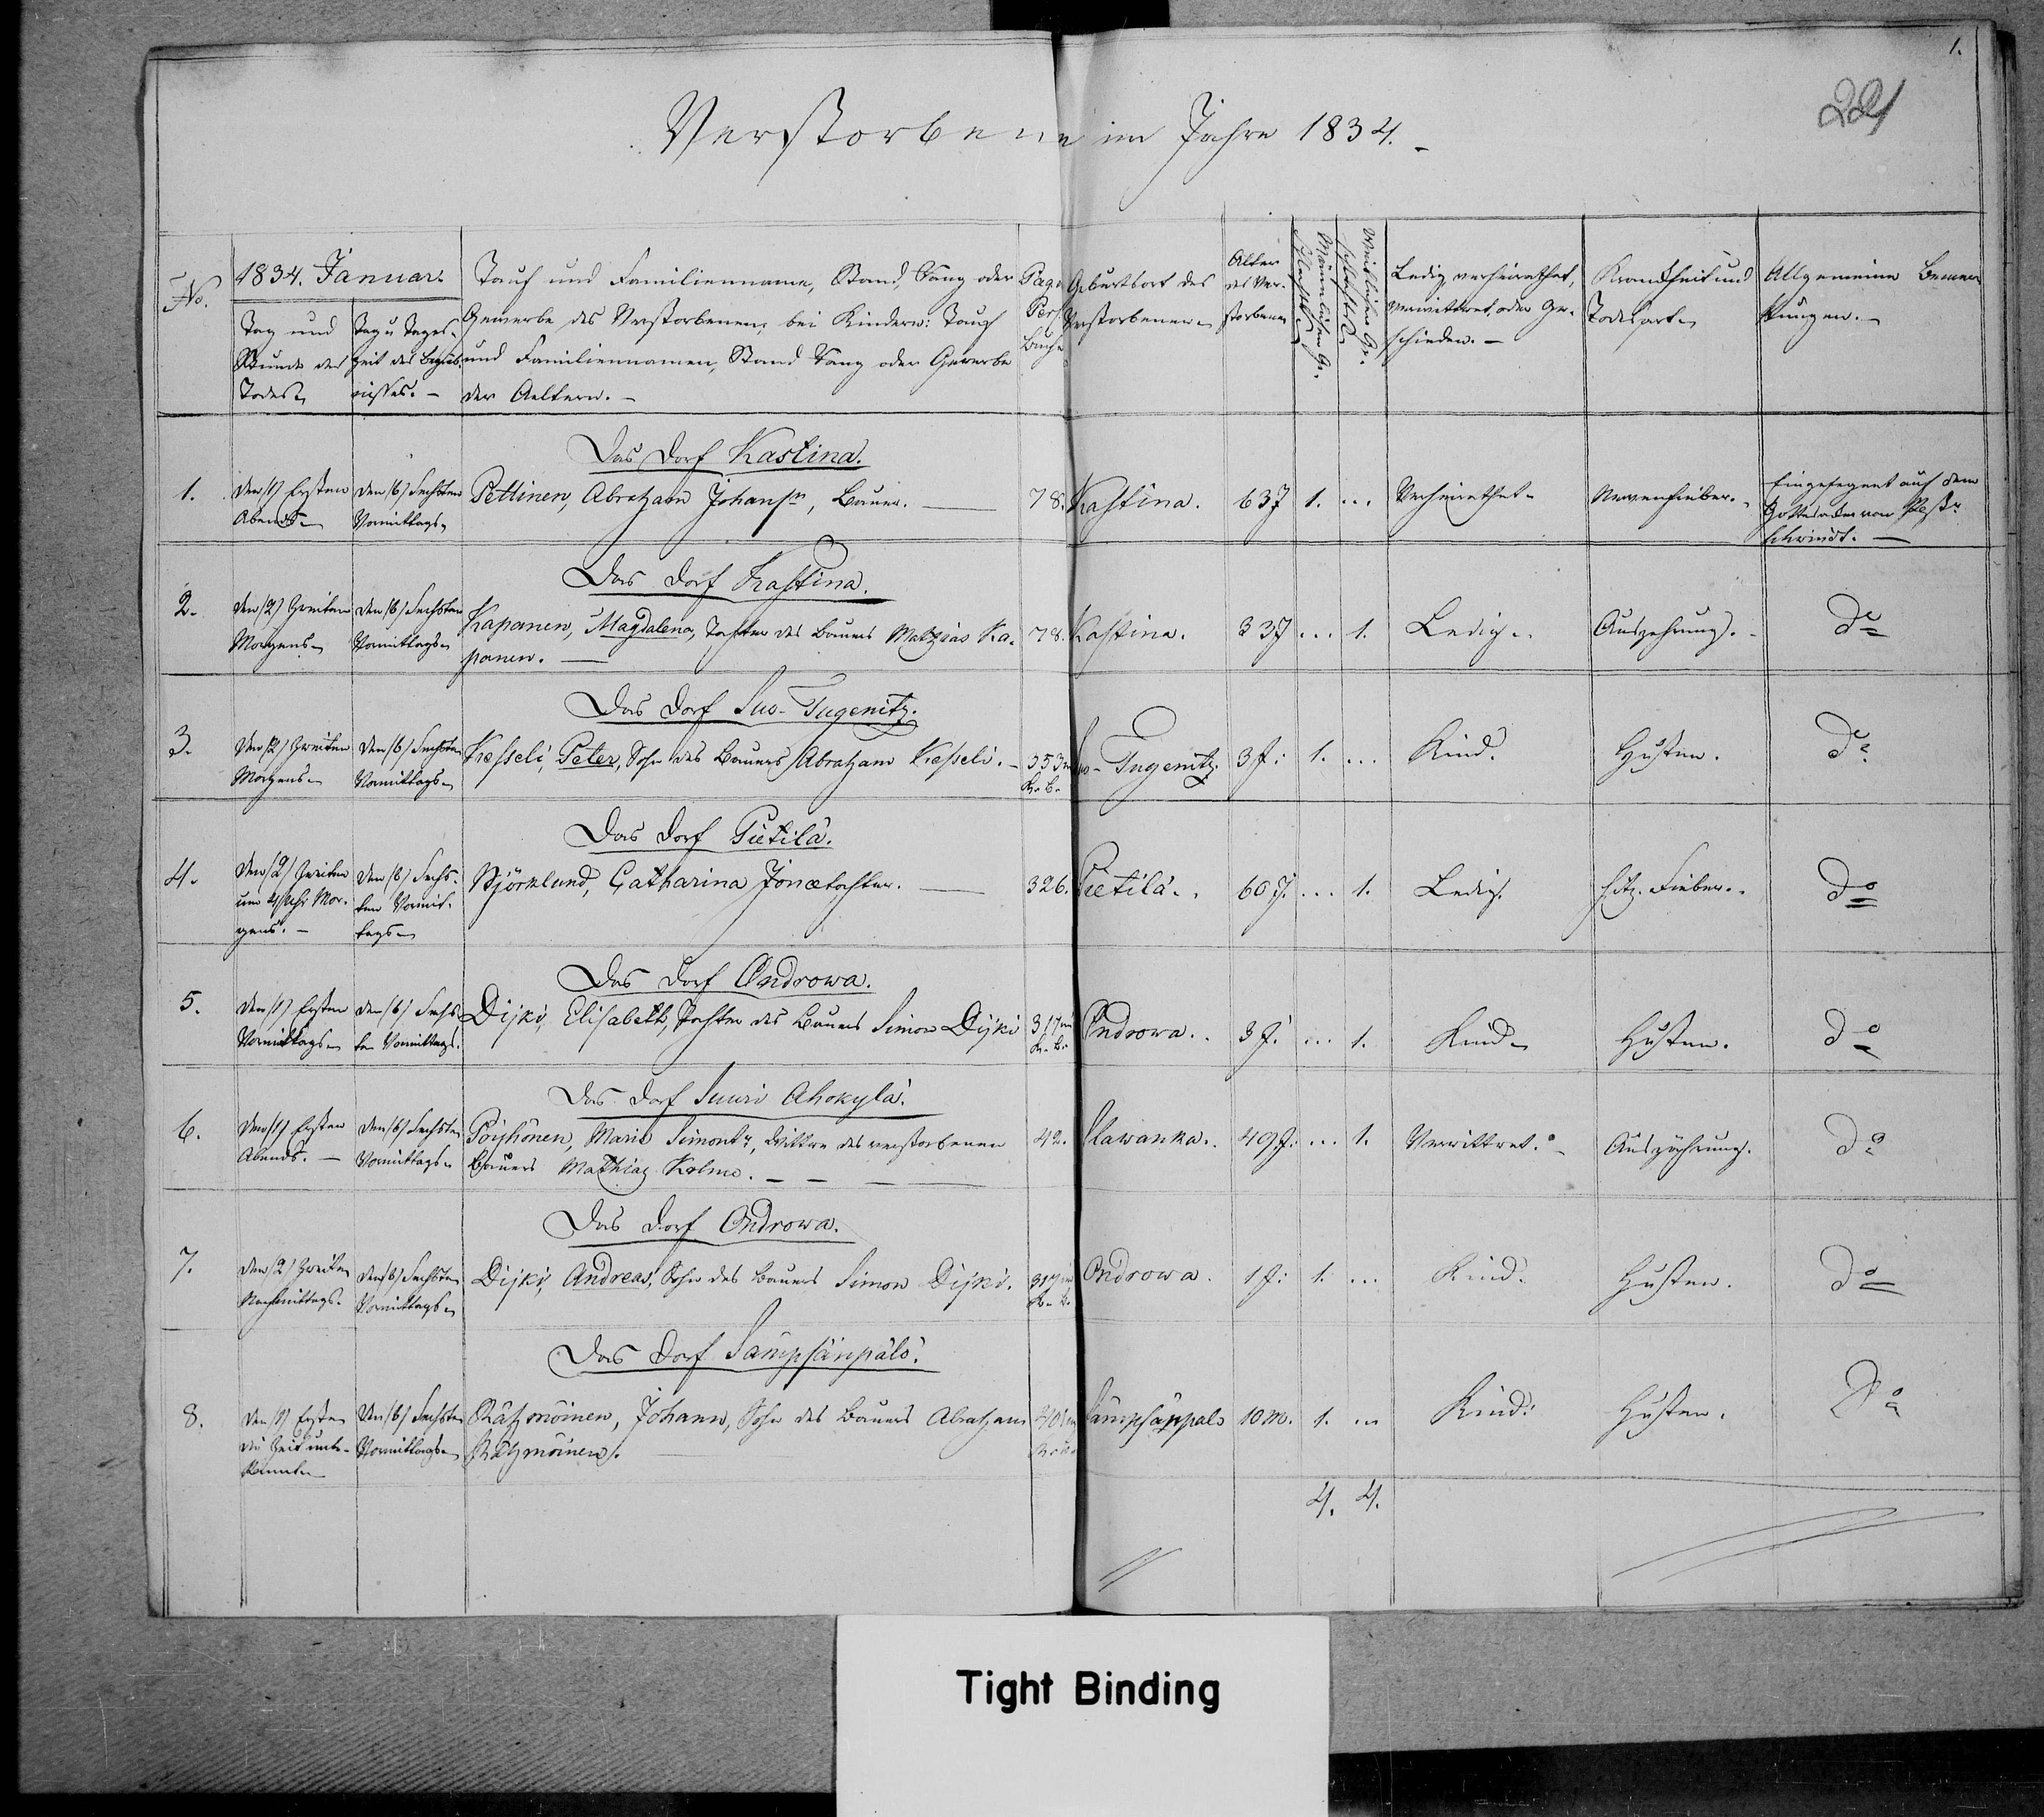 1.
221
Verstorbene im Jahre 1834.
No.
1834. Januar.
Tag und Stunde des Todes.
Tag u Tages-zeit des Begräb-nisses.
Tauf und Familienname, Stand, Rang oder
Gewerbe des Verstorbenen, bei Kindern: Tauf
und Familiennamen, Stand Rang oder Gewerbe
der Aeltern.
Pag. Pers. Buchs
Geburtsort des Verstorbenen
Alter des Ver-storbenen
Männlichen Ge-schlechts
Weiblichen Ge-schlechts
Ledig, verheirathet, verwittwet, oder Ge-schieden.
Krankheit und Todesart
Allgemeine Bemer-kungen.
Das Dorf Kastina.
1. den (1) Ersten Abends den (6) Sechsten Vormittags Pettinen, Abraham Johansn, Bauer. 78. Kastina. 63 J 1. ... Verheirathet Nervenfieber. Eingesegnet auf dem Gottesacker von Past. Schrindt.
Das Dorf Kastina.
2. den (2) Zweiten Morgens den (6) Sechsten Vormittags Kapanen, Magdalena, Tochter des Bauers Mathias Ka- 78. Kastina. 33 J ... 1. Ledig. Auszehrung. do
panen.
Das Dorf Suo-Tugenitz.
3. den (2) Zweiten Morgens den (6) Sechsten Vormittags Kesseli, Peter, Sohn des Bauers Abraham Kesseli. 353 K. B. Suo-Tugenitz. 3 J. 1. ... Kind. Husten. do
Das Dorf Pietilä.
4. den (2) Zweiten um 4 Uhr Mor-gens. den (6) Sechs-ten Vormit-tags Björklund, Catharina Jonætochter. 326. Pietilä. 60 J. ... 1. Ledig. hitz. Fieber. do
Das Dorf Ondrowa.
5. den (1) Ersten Vormittags den (6) Sechs-ten Vormittags. Dijki, Elisabeth, Tochter des Bauers Simon Dijki 317 im K. B. Ondrowa. 3 J. ... 1. Kind Husten. do
Das Dorf Suuri Ahokylä.
6. den (1) Ersten Abends. den (6) Sechsten Vormittags Pöyhönen, Maria Simontr, Wittwe des verstorbenen 42. Slawanka. 49 J. ... 1. Verwittwet. Auszährung. do
Bauers Mathias Kolmo.
Das Dorf Ondrowa.
7. den (2) Zweiten Nachmittags. den (6) Sechsten Vormittags Dijki, Andreas, Sohn des Bauers Simon Dijki. 317 im K. B. Ondrowa. 1 J. 1. ... Kind. Husten. do
Das Dorf Sämpsänpälo.
8. den (1) Ersten die Zeit unbe-kannt den (6) Sechsten Vormittags Rähmöinen, Johann, Sohn des Bauers Abraham Sämpsänpalo 10 M. 1. ... Kind. Husten. Do
Rähmöinen.
4. 4.
Tight Binding